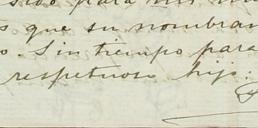 para mis
s que su nombran
o. Sin tiempo para
respetuoso hijo.